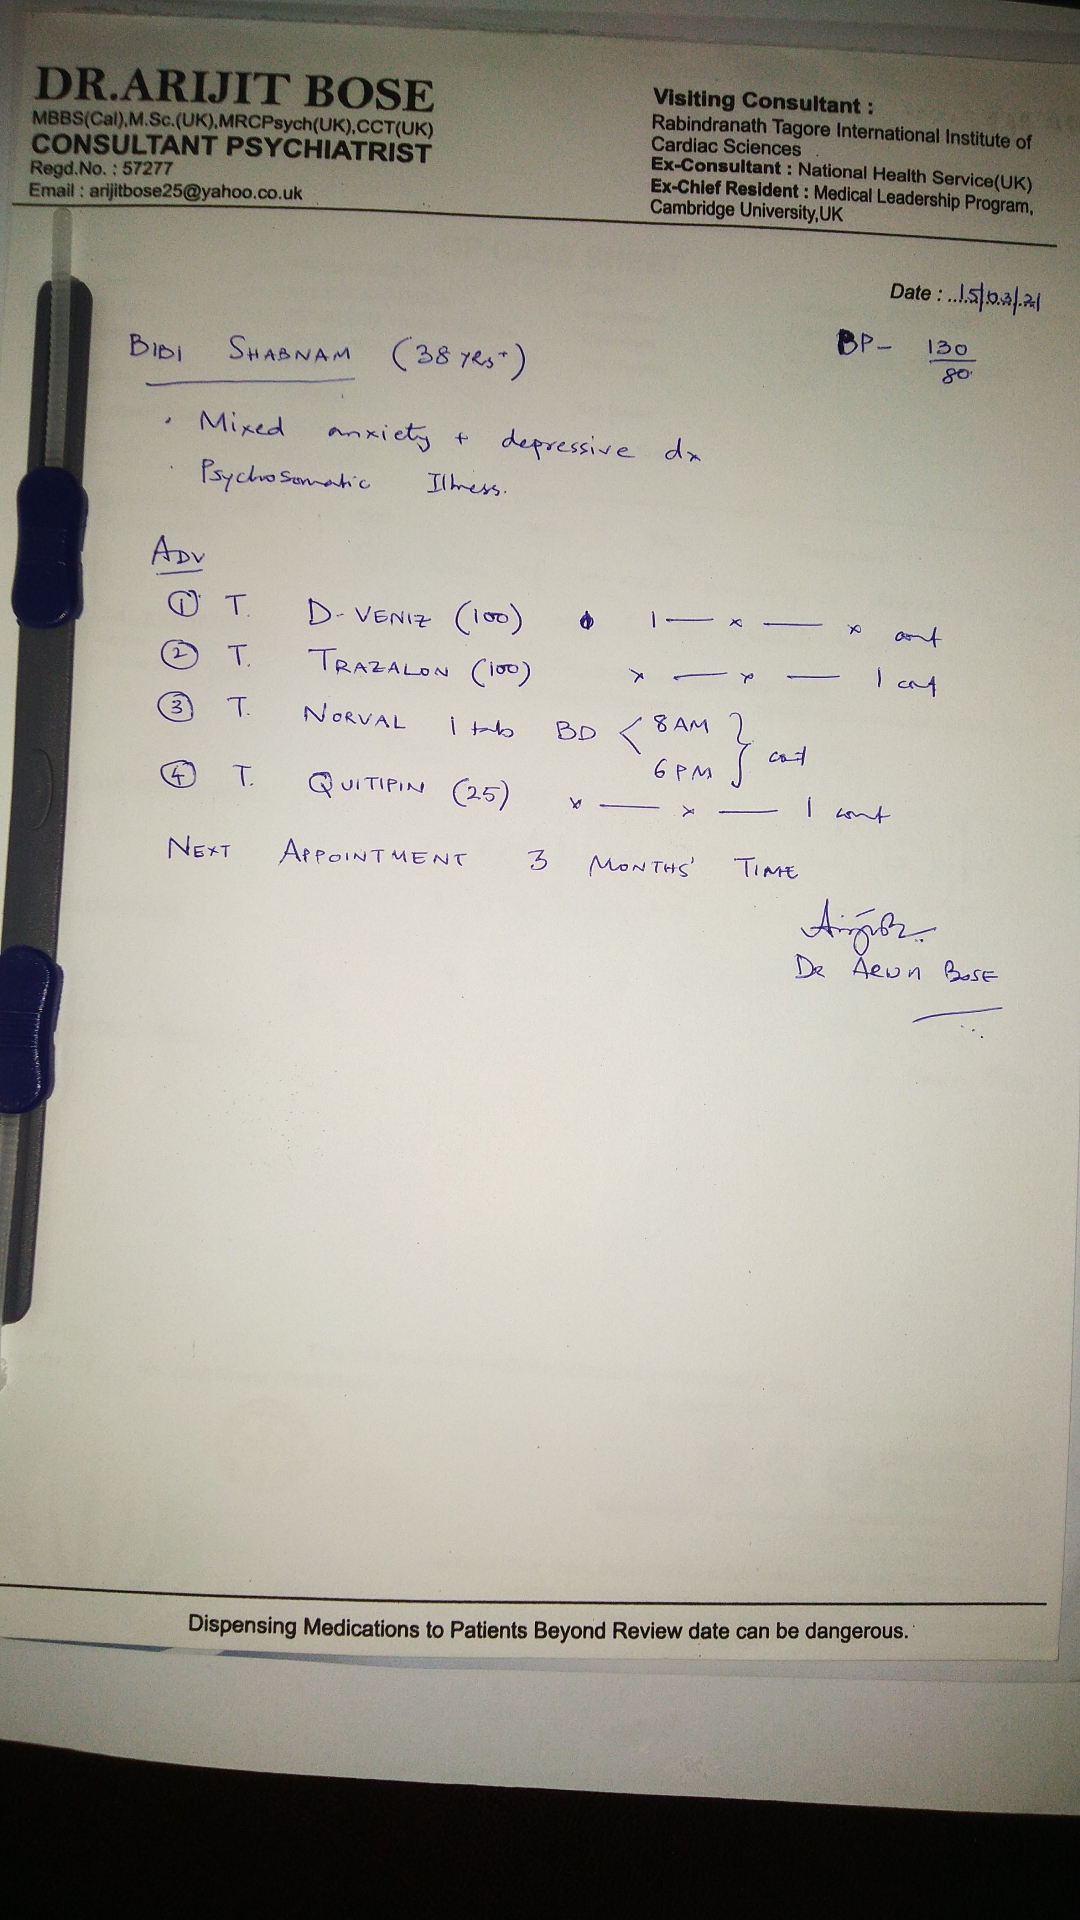 DR.ARIJIT BOSE
MBBS(Cal),M.Sc.(UK),MRCPsych(UK),CCT(UK)
CONSULTANT PSYCHIATRIST
Regd.No. : 57277
Email : arijitbose25@yahoo.co.uk
Visiting Consultant :
Rabindranath Tagore International Institute of
Cardiac Sciences
Ex-Consultant : National Health Service(UK)
Ex-Chief Resident : Medical Leadership Program,
Cambridge University,UK
Date : 15/03/21
BIBI SHABNAM (38 yrs+)
BP- 130/80
• Mixed anxiety + depressive dx
• Psychosomatic Illness.
ADV
① T. D-VENIZ (100) 1 — x — x cont
② T. TRAZALON (100) x — x — 1 cont
③ T. NORVAL 1 tab BD < 8 AM 6 PM } cont
④ T. QUITIPIN (25) x — x — 1 cont
NEXT APPOINTMENT 3 MONTHS' TIME
DR BOSE
Dispensing Medications to Patients Beyond Review date can be dangerous.